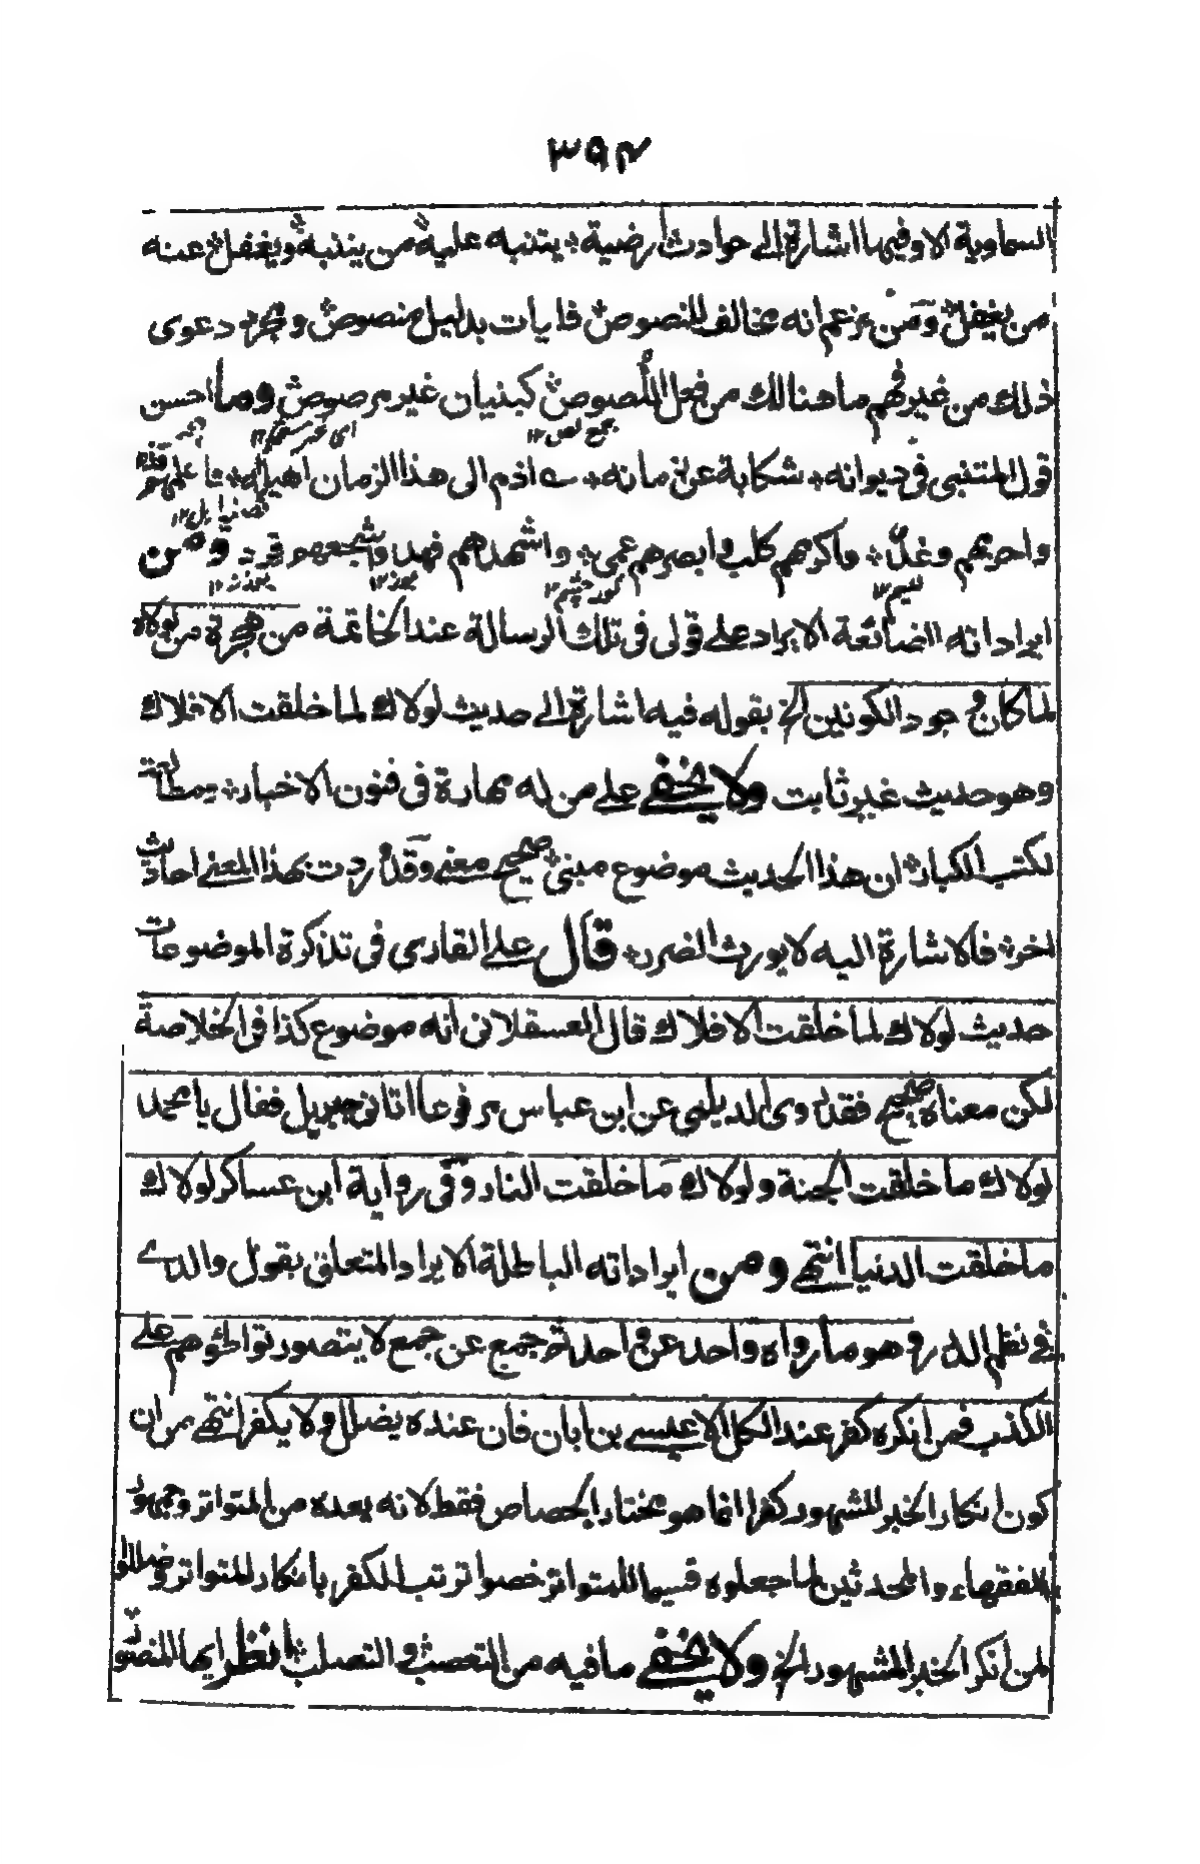 ٣٩٢
السماوية الا وفيها اشارة الى حوادث ارضية يتنبه عليه من يتنبه ويغفل عنه
من يغفل ومن زعم انه مخالف للنصوص فليات بدليل منصوص ومجرد دعوى
ذلك من غير فهم ما هنالك من فحل اللصوص كبنيان غير مرصوص وما احسن
قول المتنبى فى ديوانه شكاية عن زمانه اذم الى هذا الزمان اهيله فاعلمهم فدم
واحزمهم وغد واكرمهم كلب وابصرهم عمى واشهدهم فهد واشجعهم قرد ومن
ايراداته الضائعة الايراد على قولى فى تلك الرسالة عند الخاتمة من هجرة من لولاه
لما كان وجود الكونين الخ بقوله فيه اشارة الى حديث لولاك لما خلقت الافلاك
وهو حديث غير ثابت ولا يخفى على من له مهارة فى فنون الاخبار بمطالعة
لكتب الكبار ان هذا الحديث موضوع مبنى صحيح معنى وقد وردت بهذا المعنى احاديث
اخر فالاشارة اليه لا يورث الضرر قال على القارى فى تذكرة الموضوعات
حديث لولاك لما خلقت الافلاك قال العسقلانى انه موضوع كذا فى الخلاصة
لكن معناه صحيح فقد روى الديلمى عن ابن عباس مرفوعا اتانى جبريل فقال يا محمد
لولاك ما خلقت الجنة ولولاك ما خلقت النار وفى رواية ابن عساكر لولاك
ما خلقت الدنيا انتهى ومن ايراداته الباطلة الايراد المتعلق بقول والدى
فى نظم الدرر وهو ما رواه واحد عن واحد او جمع عن جمع لا يتصور تواطؤهم على
الكذب فمن انكره كفر عند الكل الا عيسى بن ابان فان عنده يضلل ولا يكفر انتهى من ان
كون انكار الخبر المشهور كفرا انما هو مختار الجصاص فقط لانه يعده من المتواتر وجمهور
الفقهاء والمحدثين لما جعلوه قسيما للمتواتر خصوا ترتب الكفر بانكار المتواتر وضللوا
من انكر الخبر المشهور الخ ولا يخفى ما فيه من التعصب والتصلب انظر ايها المنصف